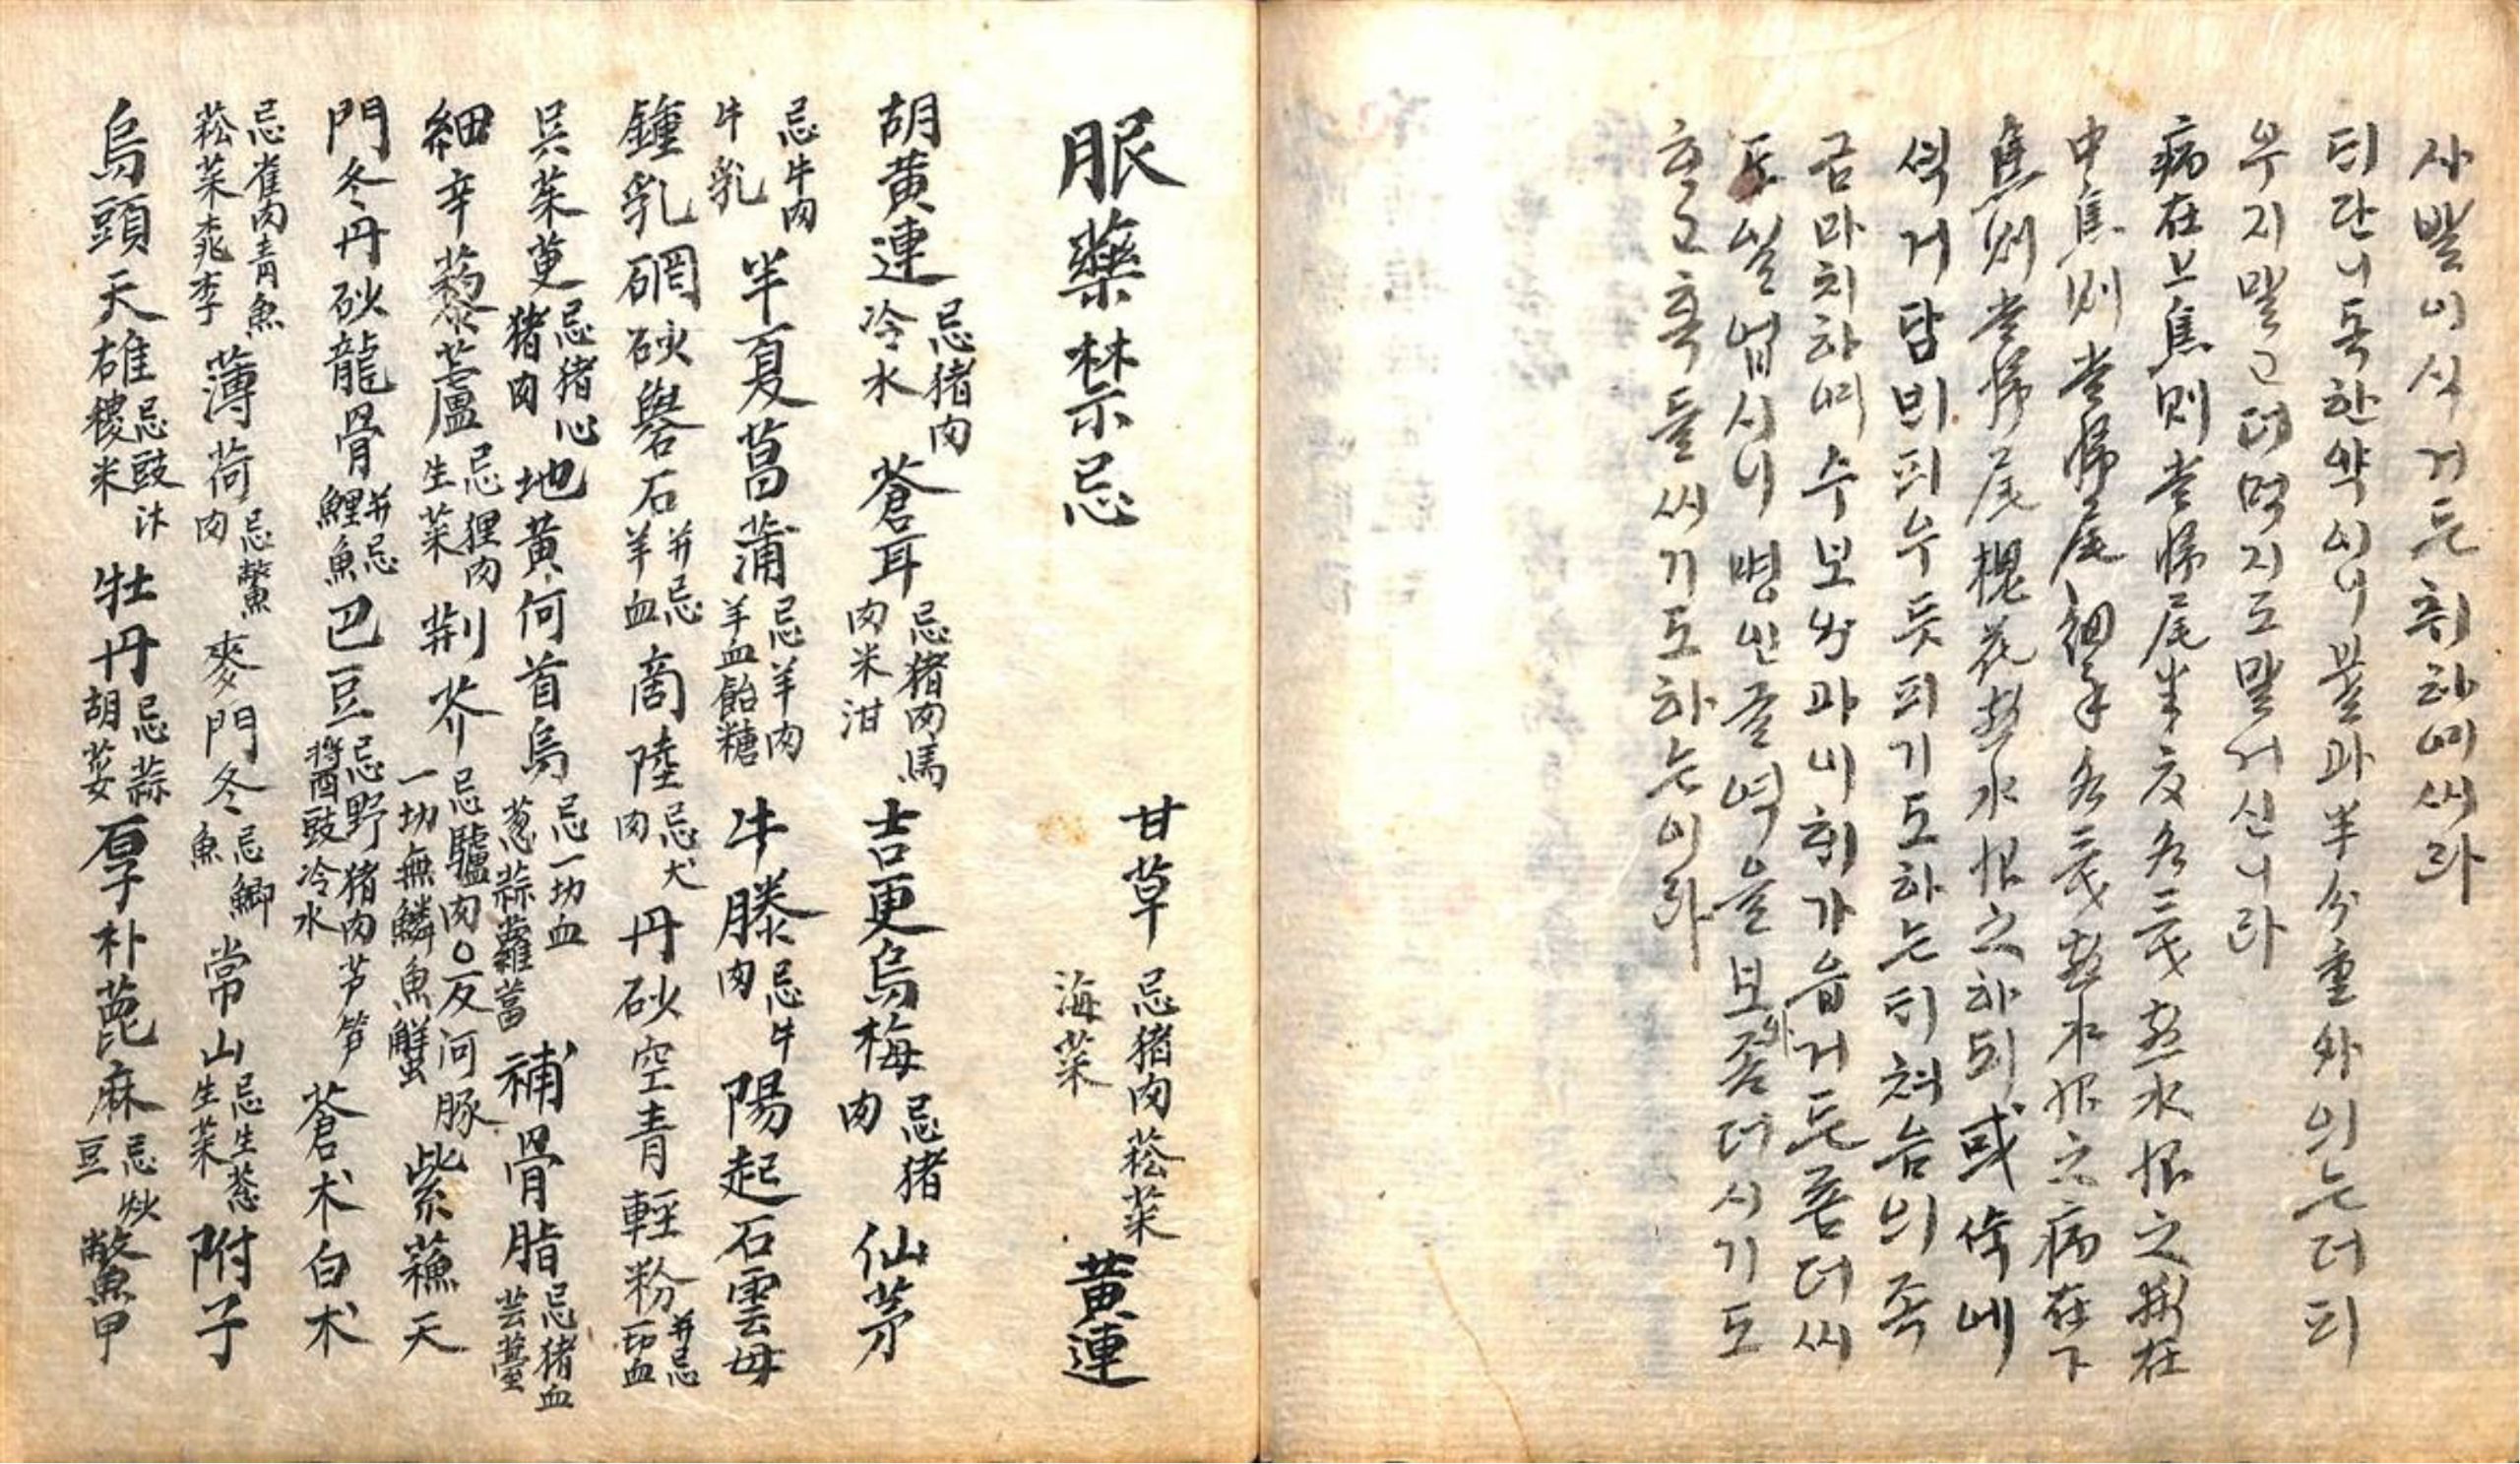 사발이식거든취하며써라
티단니독한약이니불과半分重外의는더티
우지말고더먹지도말거신니라
病在上焦則當歸尾半夏各三戔煎水服之病在
中焦則當歸尾細辛各三戔煎水服之病在下
焦則當歸尾槐花煎水服之하되或冷네
석거담비피우듯피기도하는티처음의족
금마치하며수보살과비취가읍거든좀더써
도실업시니병인글역을보아좀더시기도
하고혹들써기도하는이라
服藥禁忌
甘草忌猪肉菘菜海菜黃連
胡黃連忌猪肉冷水蒼耳忌猪肉馬肉米泔吉更烏梅忌猪肉仙茅
忌牛肉牛乳半夏菖蒲忌羊肉羊血飴糖牛膝忌牛肉陽起石雲母
鍾乳硇砂礜石并忌羊血商陸忌犬肉丹砂空青輕粉并忌一切血
吳茱萸忌猪心猪肉地黃何首烏忌一切血葱蒜蘿葍補骨脂忌猪血芸薹
細辛藜蘆忌狸肉生菜荊芥忌驢肉○反河豚一切無鱗魚蟹紫蘇天
門冬丹砂龍骨并忌鯉魚巴豆忌野猪肉芦笋醬豉冷水蒼朮白朮
忌雀肉青魚菘菜桃李薄荷忌鱉肉麥門冬忌鯽魚常山忌生葱生菜附子
烏頭天雄忌豉汁稷米牡丹忌蒜胡荽厚朴蓖麻忌炒豆鱉甲